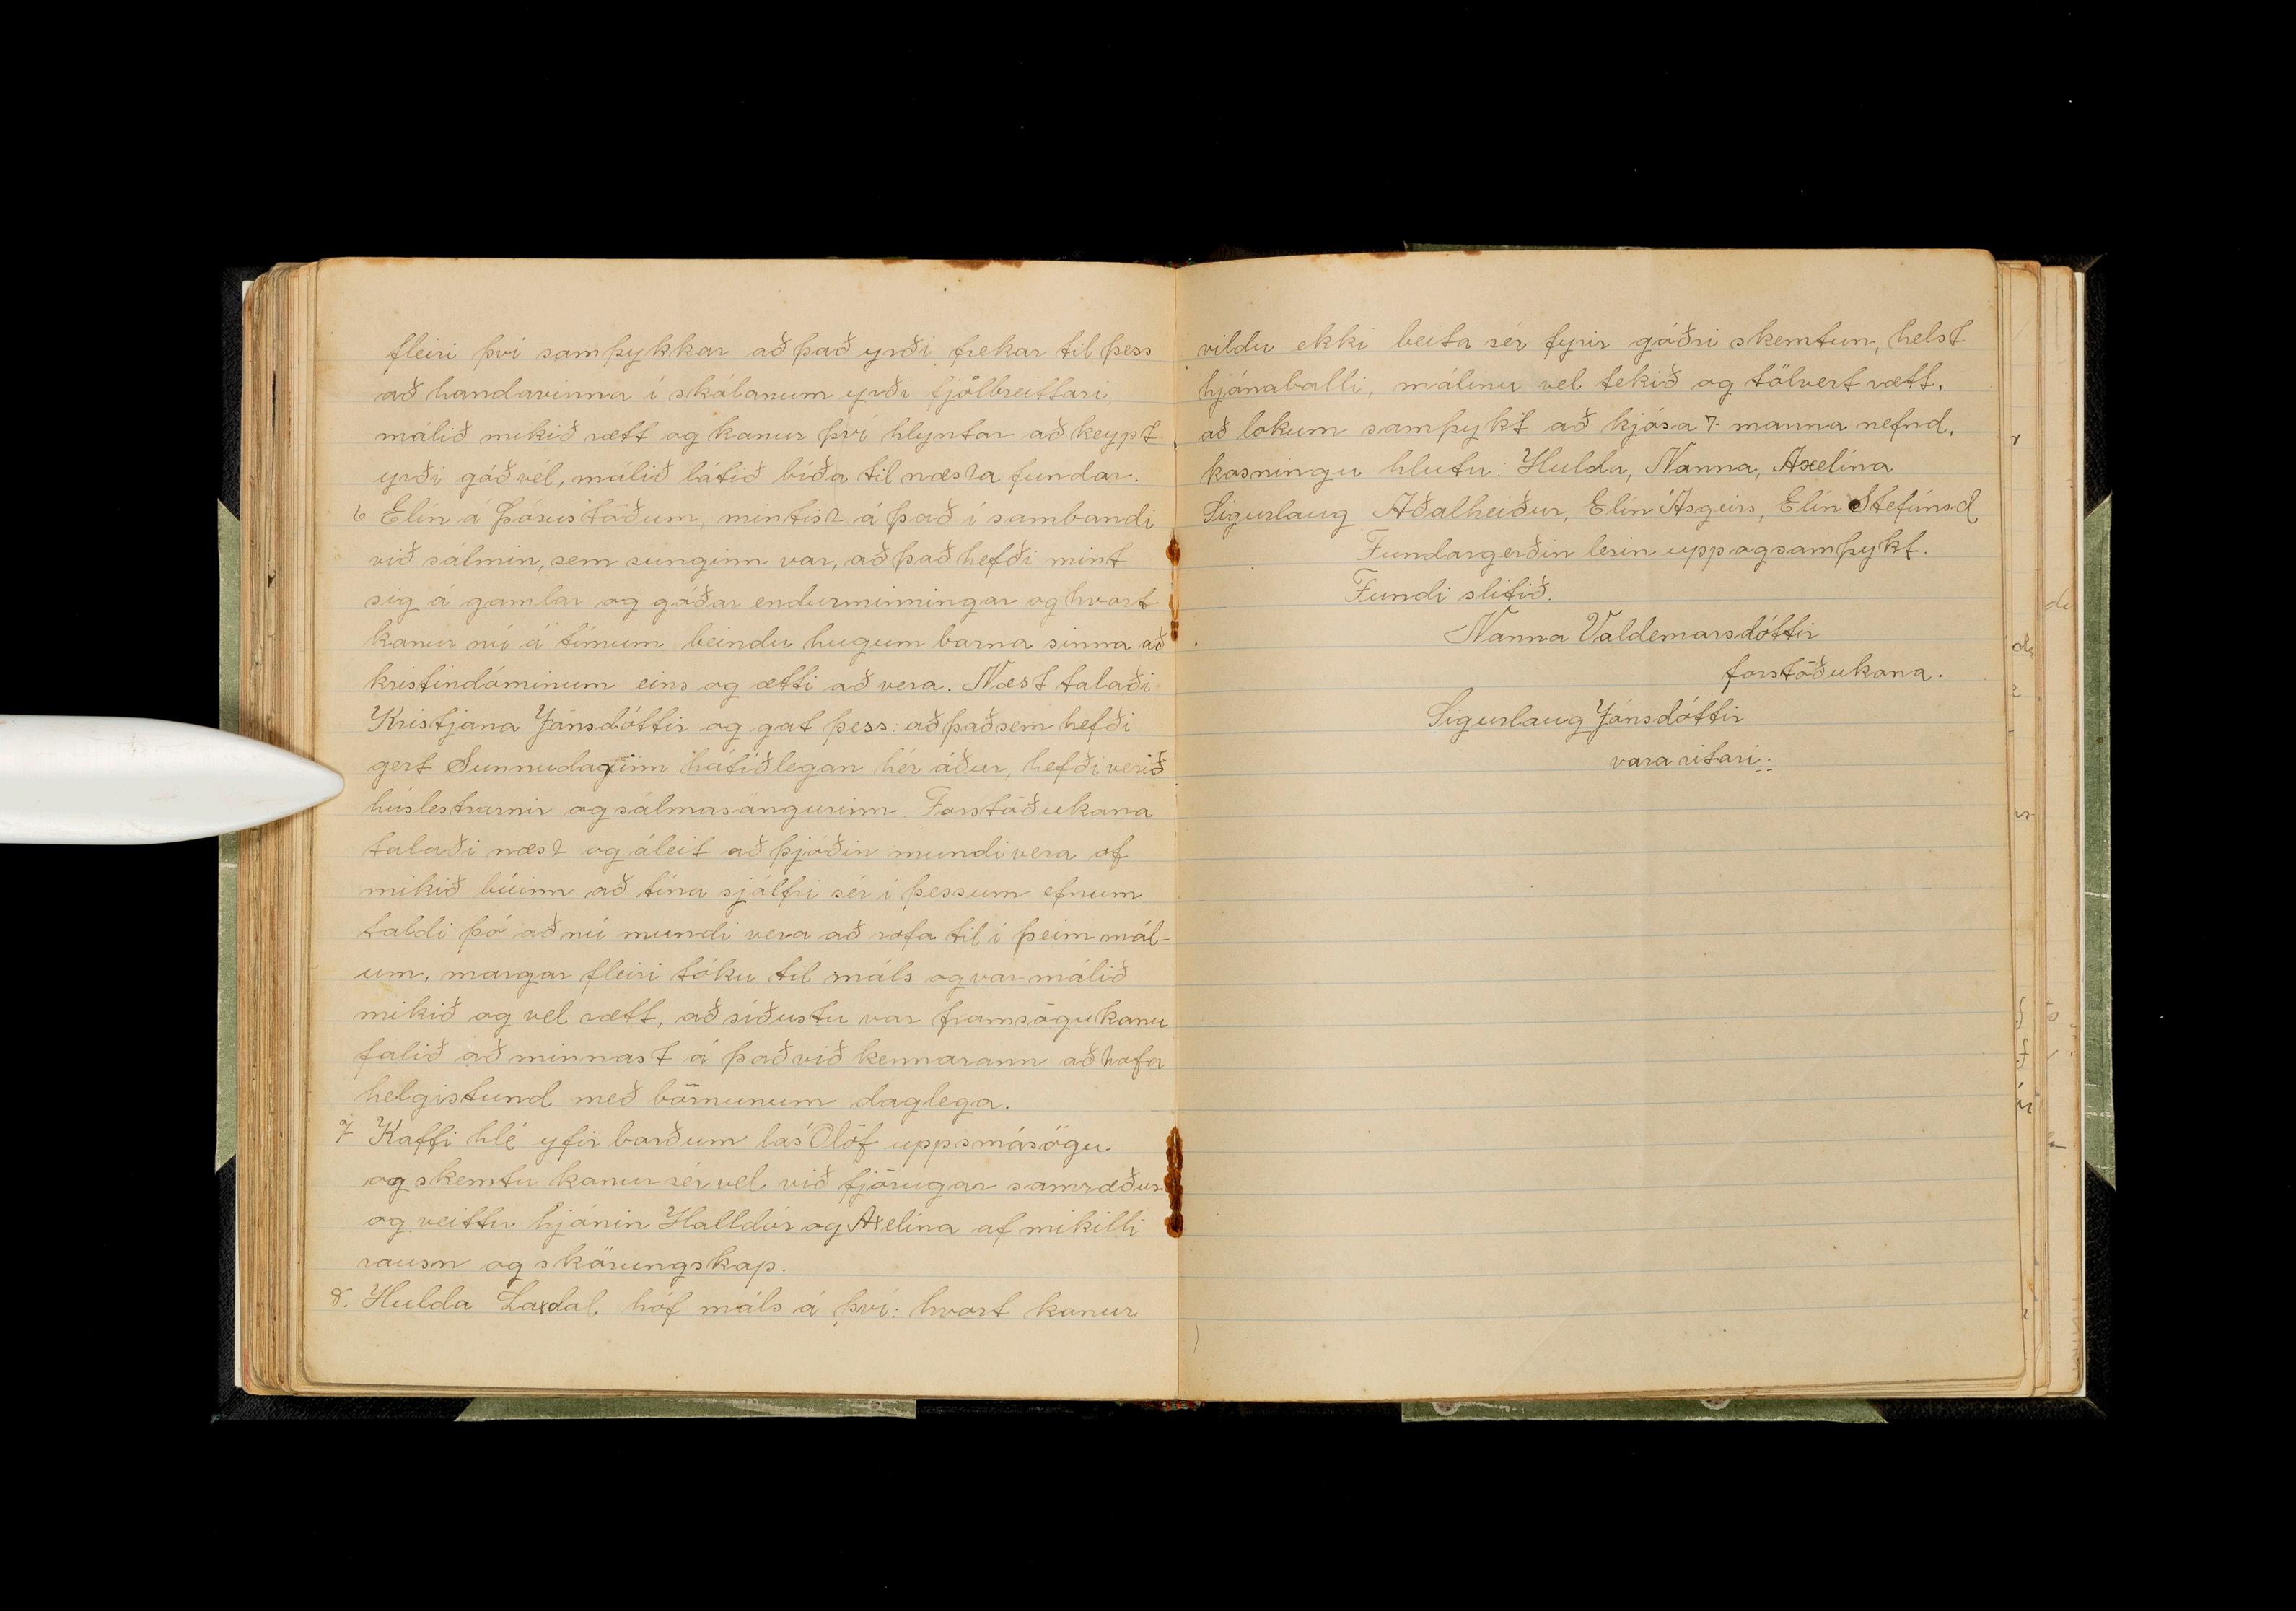 fleiri því samþykkar að það yrði frekar til þess
að handavinna í skólanum yrði fjölbreittari,
málið mikið rætt og konur því hlyntar að keypt
yrði góð vél, málið látið bíða til næsta fundar.
6 Elín á Þórustöðum, mintist á það í sambandi
við sálmin, sem sunginn var, að það hefði mint
sig á gamlar og góðar endurminningar og hvort
konur nú á tímum beindu hugum barna sinna að
kristindóminum eins og ætti að vera. Næst talaði
Kristjana Jónsdóttir og gat þess: að það sem hefði
gert Sunnudaginn hátíðlegan hér áður, hefði verið
húslestrarnir og sálmasöngurinn. Forstöðukona
talaði næst og áleit að þjóðin mundi vera of
mikið búinn að týna sjálfri sér í þessum efnum
taldi þó að nú mundi vera að rofa til í þeim mál-
um, margar fleiri tóku til máls og var málið
mikið og vel rætt, að síðustu var framsögukonu
falið að minnast á það við kennarann að hafa
helgistund með börnunum daglega.
7 Kaffi hlé yfir borðum las Ólöf upp smásögu
og skemtu konur sér vel við fjörugar samræður
og veittu hjónin Halldór og Axelína af mikilli
rausn og skörungskap.
8. Hulda Laxdal. hóf máls á því: hvort konur
vildu ekki beita sér fyrir góðri skemtun, helst
hjónaballi, málinu vel tekið og tölvert rætt,
að lokum samþykt að kjósa 7 manna nefnd,
kosningu hlutu: Hulda, Nanna, Axelína
Sigurlaug Aðalheiður, Elín Ásgeirs, Elín Stefánsd
Fundargerðin lesin upp og samþykt.
Fundi slitið.
Nanna Valdemarsdóttir
forstöðukona.
Sigurlaug Jónsdóttir
vara ritari.